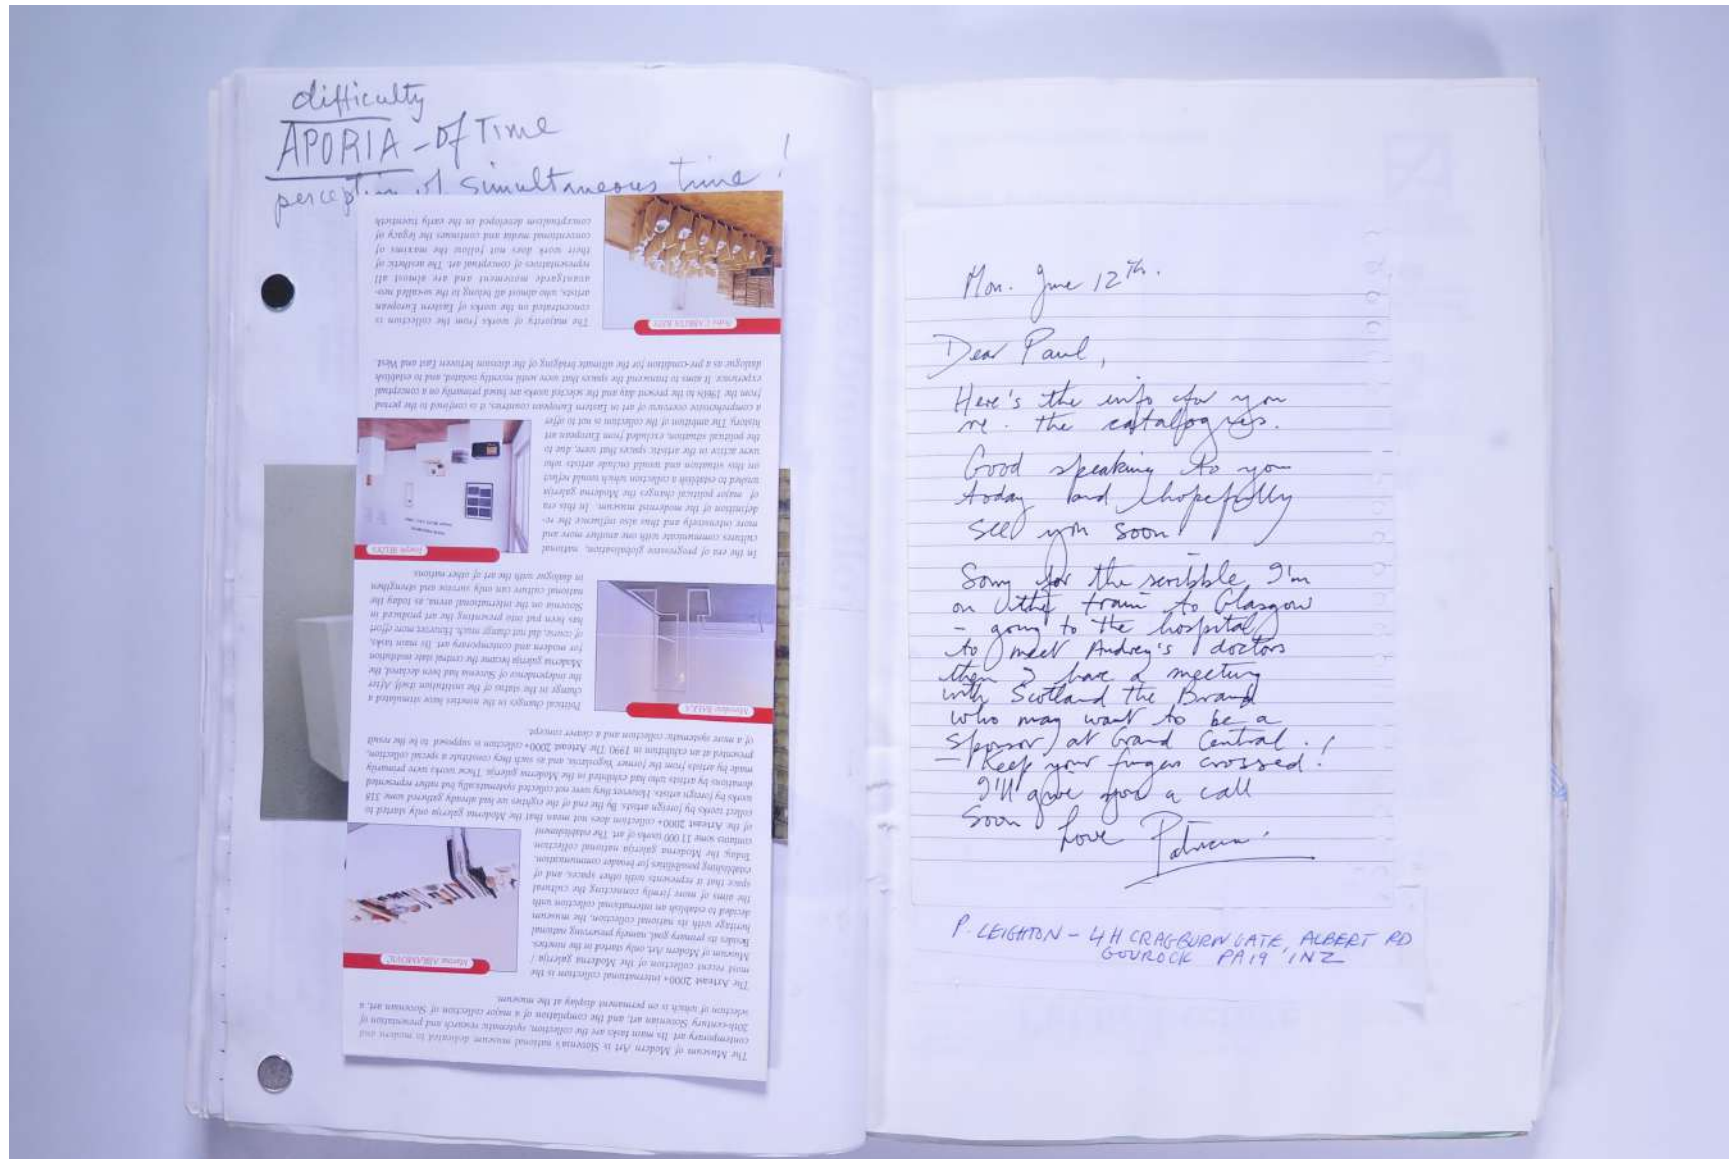 difficulty
APORIA - of Time
perception of simultaneous time !
The Museum of Modern Art is Slovenia's national museum dedicated to modern and
contemporary art. Its main tasks are the collection, systematic research and presentation of
20th-century Slovenian art, and the compilation of a major collection of Slovenian art, a
selection of which is on permanent display at the museum.
The Arteast 2000+ international collection is the
most recent collection of the Moderna galerija /
Museum of Modern Art, only started in the nineties.
Besides its primary goal, namely preserving national
heritage with its national collection, the museum
decided to establish an international collection with
the aims of more firmly connecting the cultural
space that it represents with other spaces, and of
establishing possibilities for broader communication.
Today, the Moderna galerija national collection
contains some 11 000 works of art. The establishment
of the Arteast 2000+ collection does not mean that the Moderna galerija only started to
collect works by foreign artists. By the end of the eighties we had already gathered some 318
works by foreign artists. However, they were not collected systematically but rather represented
donations by artists who had exhibited in the Moderna galerija. These works were primarily
made by artists from the former Yugoslavia, and as such they constitute a special collection,
presented at an exhibition in 1990. The Arteast 2000+ collection is supposed to be the result
of a more systematic collection and a clearer concept.
Marina ABRAMOVIĆ
Political changes in the nineties have stimulated a
change in the status of the institution itself. After
the independence of Slovenia had been declared, the
Moderna galerija became the central state institution
for modern and contemporary art. Its main tasks,
of course, did not change much. However, more effort
has been put into presenting the art produced in
Slovenia on the international arena, as today the
national culture can only survive and strengthen
in dialogue with the art of other nations.
Miroslaw BALKA
In the era of progressive globalisation, national
cultures communicate with one another more and
more intensively and thus also influence the re-
definition of the modernist museum. In this era
of major political changes the Moderna galerija
wished to establish a collection which would reflect
on this situation and would include artists who
were active in the artistic spaces that were, due to
the political situation, excluded from European art
history. The ambition of the collection is not to offer
a comprehensive overview of art in Eastern European countries, it is confined to the period
from the 1960s to the present day and the selected works are based primarily on a conceptual
experience. It aims to transcend the spaces that were until recently isolated, and to establish
dialogue as a pre-condition for the ultimate bridging of the division between East and West.
Joseph BEUYS
The majority of works from the collection is
concentrated on the works of Eastern European
artists, who almost all belong to the so-called neo-
avantgarde movement and are almost all
representatives of conceptual art. The aesthetic of
their work does not follow the maxims of
conventional media and continues the legacy of
conceptualism developed in the early twentieth
Mon. June 12th.
Dear Paul,
Here's the info for you
re. the catalogues.
Good speaking to you
today and hopefully
see you soon!
Sorry for the scribble, I'm
on the train to Glasgow
- going to the hospital
to meet Audrey's doctors
then I have a meeting
with Scotland the Brand
who may want to be a
sponsor at Grand Central. !
- Keep your fingers crossed!
I'll give you a call
Soon
Love Patricia
P. LEIGHTON - 4H CRAGBURN GATE, ALBERT RD
GOUROCK PA19 1NZ